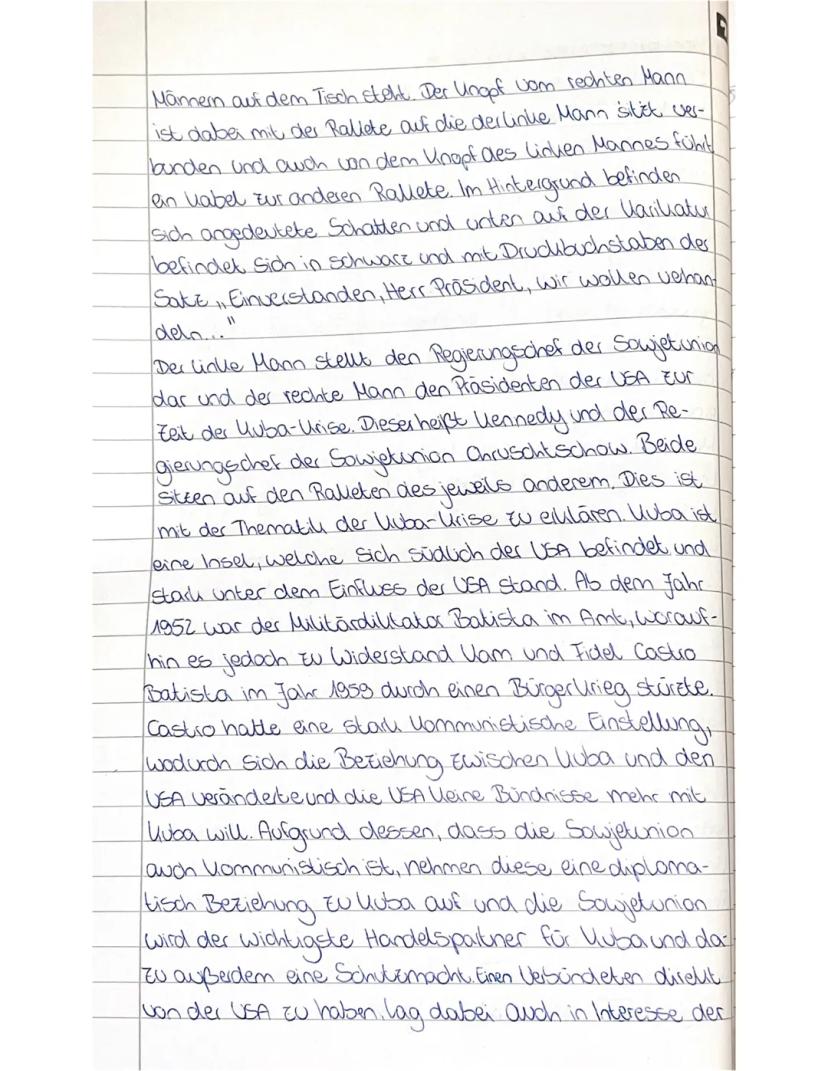 Männern auf dem Tisch steht. Der Knopf vom rechten Mann
ist dabei mit der Rakete auf die der linke Mann sitzt ver-
bunden und auch von dem Knopf des linken Mannes führt
ein Kabel zur anderen Rakete. Im Hintergrund befinden
sich angedeutete Schatten und unten auf der Karikatur
befindet sich in schwarz und mit Druckbuchstaben der
Satz „Einverstanden, Herr Präsident, wir wollen vehan-
deln..."
Der linke Mann stellt den Regierungschef der Sowjetunion
dar und der rechte Mann den Präsidenten der USA zur
Zeit der Kuba-Krise. Dieser heißt Kennedy und der Re-
gierungschef der Sowjetunion Chruschtschow. Beide
sitzen auf den Raketen des jeweils anderem. Dies ist
mit der Thematik der Kuba-Krise zu erklären. Kuba ist
eine Insel, welche sich südlich der USA befindet und
stark unter dem Einfluss der USA stand. Ab dem Jahr
1952 war der Militärdiktator Batista im Amt, worauf-
hin es jedoch zu Widerstand kam und Fidel Castro
Batista im Jahr 1959 durch einen Bürgerkrieg stürzte.
Castro hatte eine stark kommunistische Einstellung,
wodurch sich die Beziehung zwischen Kuba und den
USA veränderte und die USA keine Bündnisse mehr mit
Kuba will. Aufgrund dessen, dass die Sowjetunion
auch kommunistisch ist, nehmen diese eine diploma-
tisch Beziehung zu Kuba auf und die Sowjetunion
wird der wichtigste Handelspartner für Kuba und da-
zu außerdem eine Schutzmacht. Einen Verbündeten direkt
von der USA zu haben, lag dabei auch in Interesse der